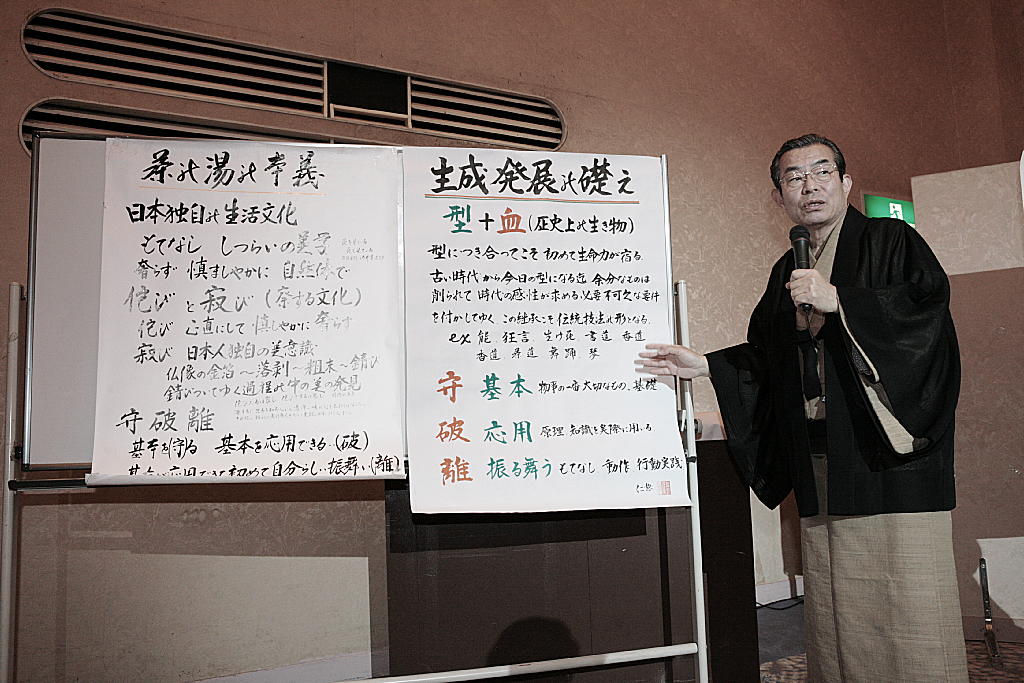 茶の湯の本義
日本独自の生活文化
もてなし しつらいの美学
奢らず 慎ましやかに 自然体で
侘びと寂び(察する文化)
侘び 心直にして 慎しやかに 奢らず
寂び 日本人独自の美意識
仏像の金箔〜落剥〜粗末〜錆び
錆びついてゆく過程の中の美の発見
守破離
基本を守る 基本を応用できる(破)
基本が応用できて初めて自分らしい振舞い(離)
生成発展の礎え
型+血(歴史上の生き物)
型につき合ってこそ 初めて生命力が宿る
古い時代から今日の型になる迄 余分なものは
削られて 時代の感性が求める必要不可欠な要件
を付かしてゆく この継承こそ 伝統技法の形となる
ex 能 狂言 生け花 書道 香道
舞踊 琴
守 基本 物事の一番大切なもの、基礎
破 応用 原理 知識を実際に用いる
離 振る舞う もてなし 動作 行動実践